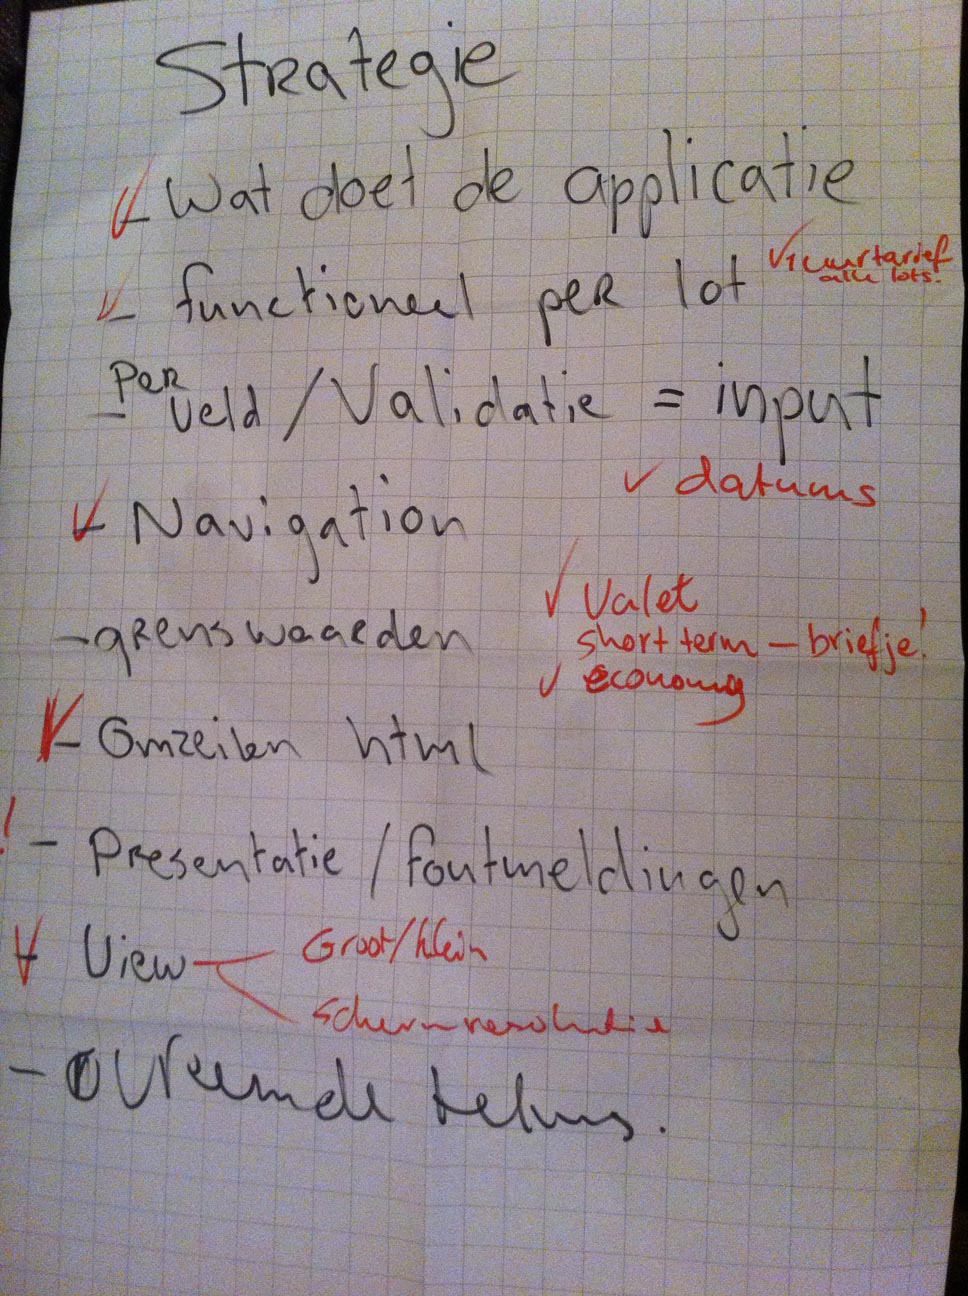 Strategie
- Wat doet de applicatie
- functioneel per lot
✓ 1e uurtarief
alle lots.
- Per veld / Validatie = input
✓ datums
- Navigation
✓ Valet
short term - briefje!
✓ economy
- grenswaarden
- Omzeilen html
! - Presentatie / foutmeldingen
View
Groot/klein
Schermresolutie
- Vreemde tekens.